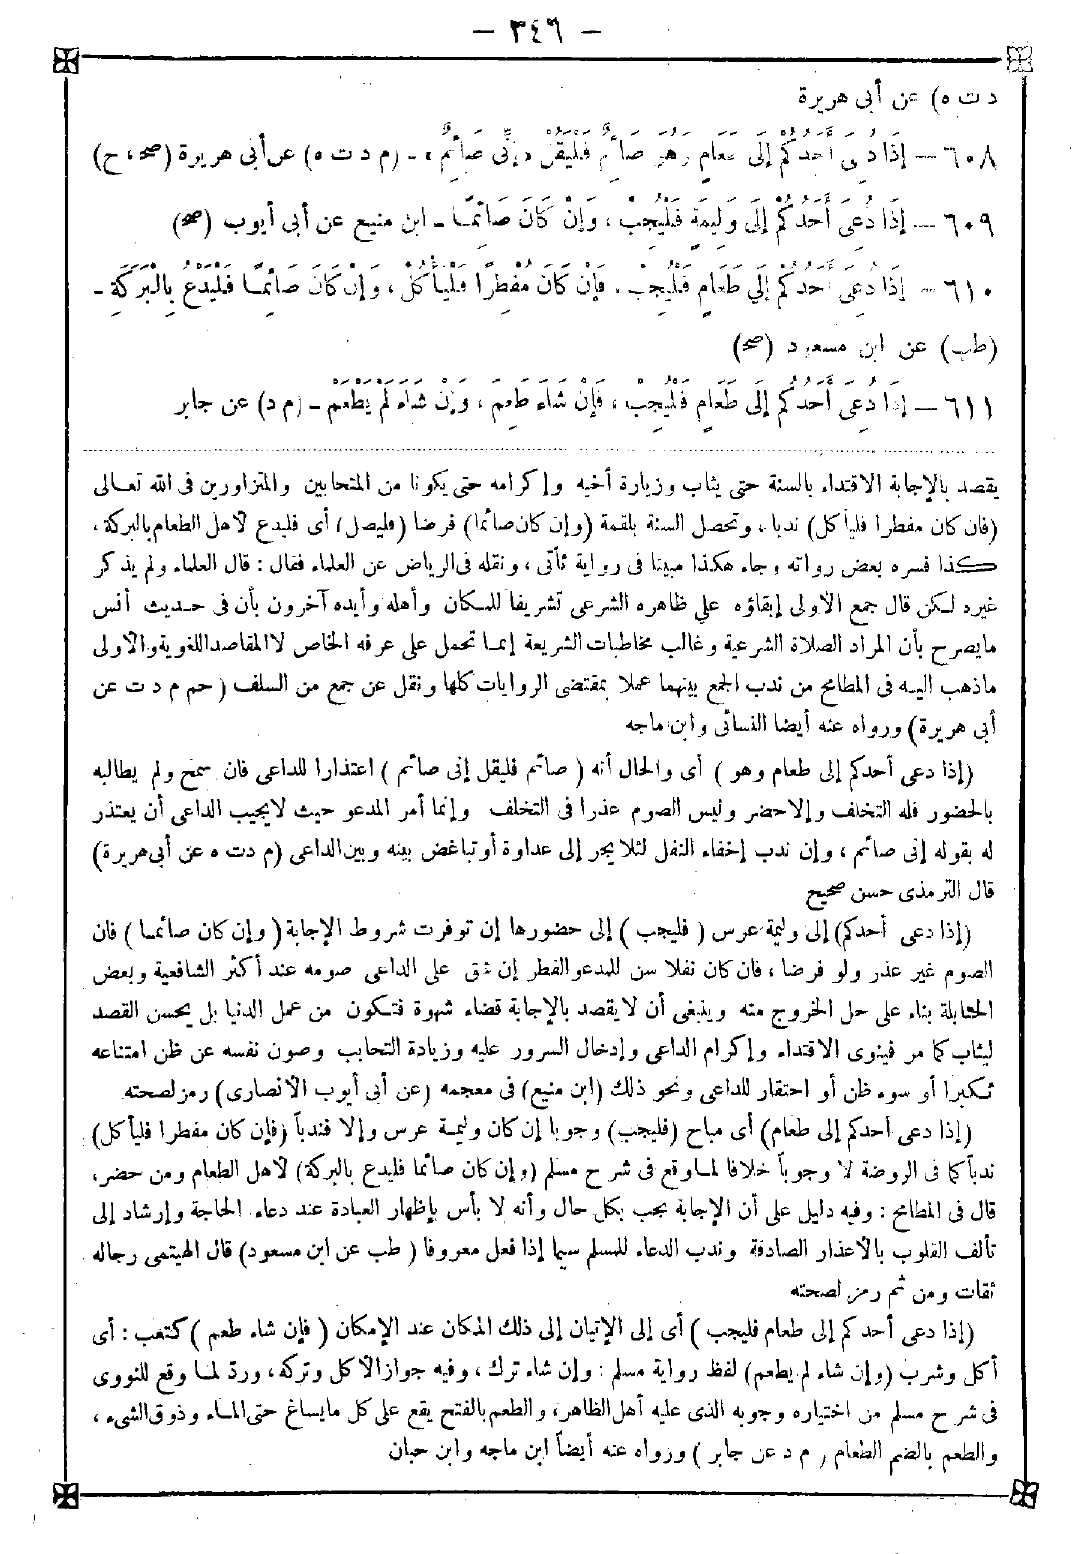 — ٣٤٦ —
د ت ه) عن أبى هريرة
٦٠٨ — إِذَا دُعِىَ أَحَدُكُمْ إِلَى طَعَامٍ وَهُوَ صَائِمٌ فَلْيَقُلْ «إِنِّى صَائِمٌ» - (م د ت ه) عن أبى هريرة (صح، ح)
٦٠٩ — إِذَا دُعِىَ أَحَدُكُمْ إِلَى وَلِيمَةٍ فَلْيُجِبْ، وَإِنْ كَانَ صَائِمًا - ابن منيع عن أبى أيوب (صح)
٦١٠ — إِذَا دُعِىَ أَحَدُكُمْ إِلَى طَعَامٍ فَلْيُجِبْ، فَإِنْ كَانَ مُفْطِرًا فَلْيَأْكُلْ، وَإِنْ كَانَ صَائِمًا فَلْيَدْعُ بِالْبَرَكَةِ -
(طب) عن ابن مسعود (صح)
٦١١ — إِذَا دُعِىَ أَحَدُكُمْ إِلَى طَعَامٍ فَلْيُجِبْ، فَإِنْ شَاءَ طَعِمَ، وَإِنْ شَاءَ لَمْ يَطْعَمْ - (م د) عن جابر
يقصد بالإجابة الاقتداء بالسنة حتى يثاب وزيارة أخيه وإكرامه حتى يكونا من المتحابين والمتزاورين فى الله تعالى
(فان كان مفطرا فليأكل) ندبا، وتحصل السنة بلقمة (وإن كان صائما) فرضا (فليصل) أى فليدع لأهل الطعام بالبركة،
كذا فسره بعض رواته وجاء هكذا مبينا فى رواية تأتى، ونقله فى الرياض عن العلماء فقال: قال العلماء ولم يذكر
غيره لكن قال جمع الأولى إبقاؤه على ظاهره الشرعى تشريفا للمكان وأهله وأيده آخرون بأن فى حديث أنس
مايصرح بأن المراد الصلاة الشرعية وغالب مخاطبات الشريعة إنما تحمل على عرفه الخاص لا المقاصد اللغوية والأولى
ماذهب اليه فى المطامح من ندب الجمع بينهما عملا بمقتضى الروايات كلها ونقل عن جمع من السلف (حم م د ت عن
أبى هريرة) ورواه عنه أيضا النسائى وابن ماجه
(إذا دعى أحدكم إلى طعام وهو) أى والحال أنه (صائم فليقل إنى صائم) اعتذارا للداعى فان سمح ولم يطالبه
بالحضور فله التخلف وإلا حضر وليس الصوم عذرا فى التخلف وإنما أمر المدعو حيث لايجيب الداعى أن يعتذر
له بقوله إنى صائم، وإن ندب إخفاء النفل لئلا يجر إلى عداوة أو تباغض بينه وبين الداعى (م دت ه عن أبى هريرة)
قال الترمذى حسن صحيح
(إذا دعى أحدكم) إلى وليمة عرس (فليجب) إلى حضورها إن توفرت شروط الإجابة (وإن كان صائما) فان
الصوم غير عذر ولو فرضا، فان كان نفلا سن للمدعو الفطر إن شق على الداعى صومه عند أكثر الشافعية وبعض
الحنابلة بناء على حل الخروج منه وينبغى أن لا يقصد بالإجابة قضاء شهوة فتكون من عمل الدنيا بل يحسن القصد
ليثاب كما مر فينوى الاقتداء وإكرام الداعى وإدخال السرور عليه وزيادة التحابب وصون نفسه عن ظن امتناعه
تكبرا أو سوء ظن أو احتقار للداعى ونحو ذلك (ابن منيع) فى معجمه (عن أبى أيوب الأنصارى) رمز لصحته
(إذا دعى أحدكم إلى طعام) أى مباح (فليجب) وجوبا إن كان وليمة عرس وإلا فندباً (فإن كان مفطرا فليأكل)
ندباً كما فى الروضة لا وجوباً خلافا لما وقع فى شرح مسلم (وإن كان صائما فليدع بالبركة) لأهل الطعام ومن حضر،
قال فى المطامح: وفيه دليل على أن الإجابة تجب بكل حال وأنه لا بأس بإظهار العبادة عند دعاء الحاجة وإرشاد إلى
تألف القلوب بالأعذار الصادقة وندب الدعاء للمسلم سيما إذا فعل معروفا (طب عن ابن مسعود) قال الهيتمى رجاله
ثقات ومن ثم رمز لصحته
(إذا دعى أحدكم إلى طعام فليجب) أى إلى الإتيان إلى ذلك المكان عند الإمكان (فإن شاء طعم) كتعب: أى
أكل وشرب (وإن شاء لم يطعم) لفظ رواية مسلم: وإن شاء ترك، وفيه جواز الأكل وتركه، ورد لما وقع للنووى
فى شرح مسلم من اختياره وجوبه الذى عليه أهل الظاهر، والطعم بالفتح يقع على كل مايساغ حتى الماء وذوق الشىء،
والطعم بالضم الطعام (م د عن جابر) ورواه عنه أيضاً ابن ماجه وابن حبان